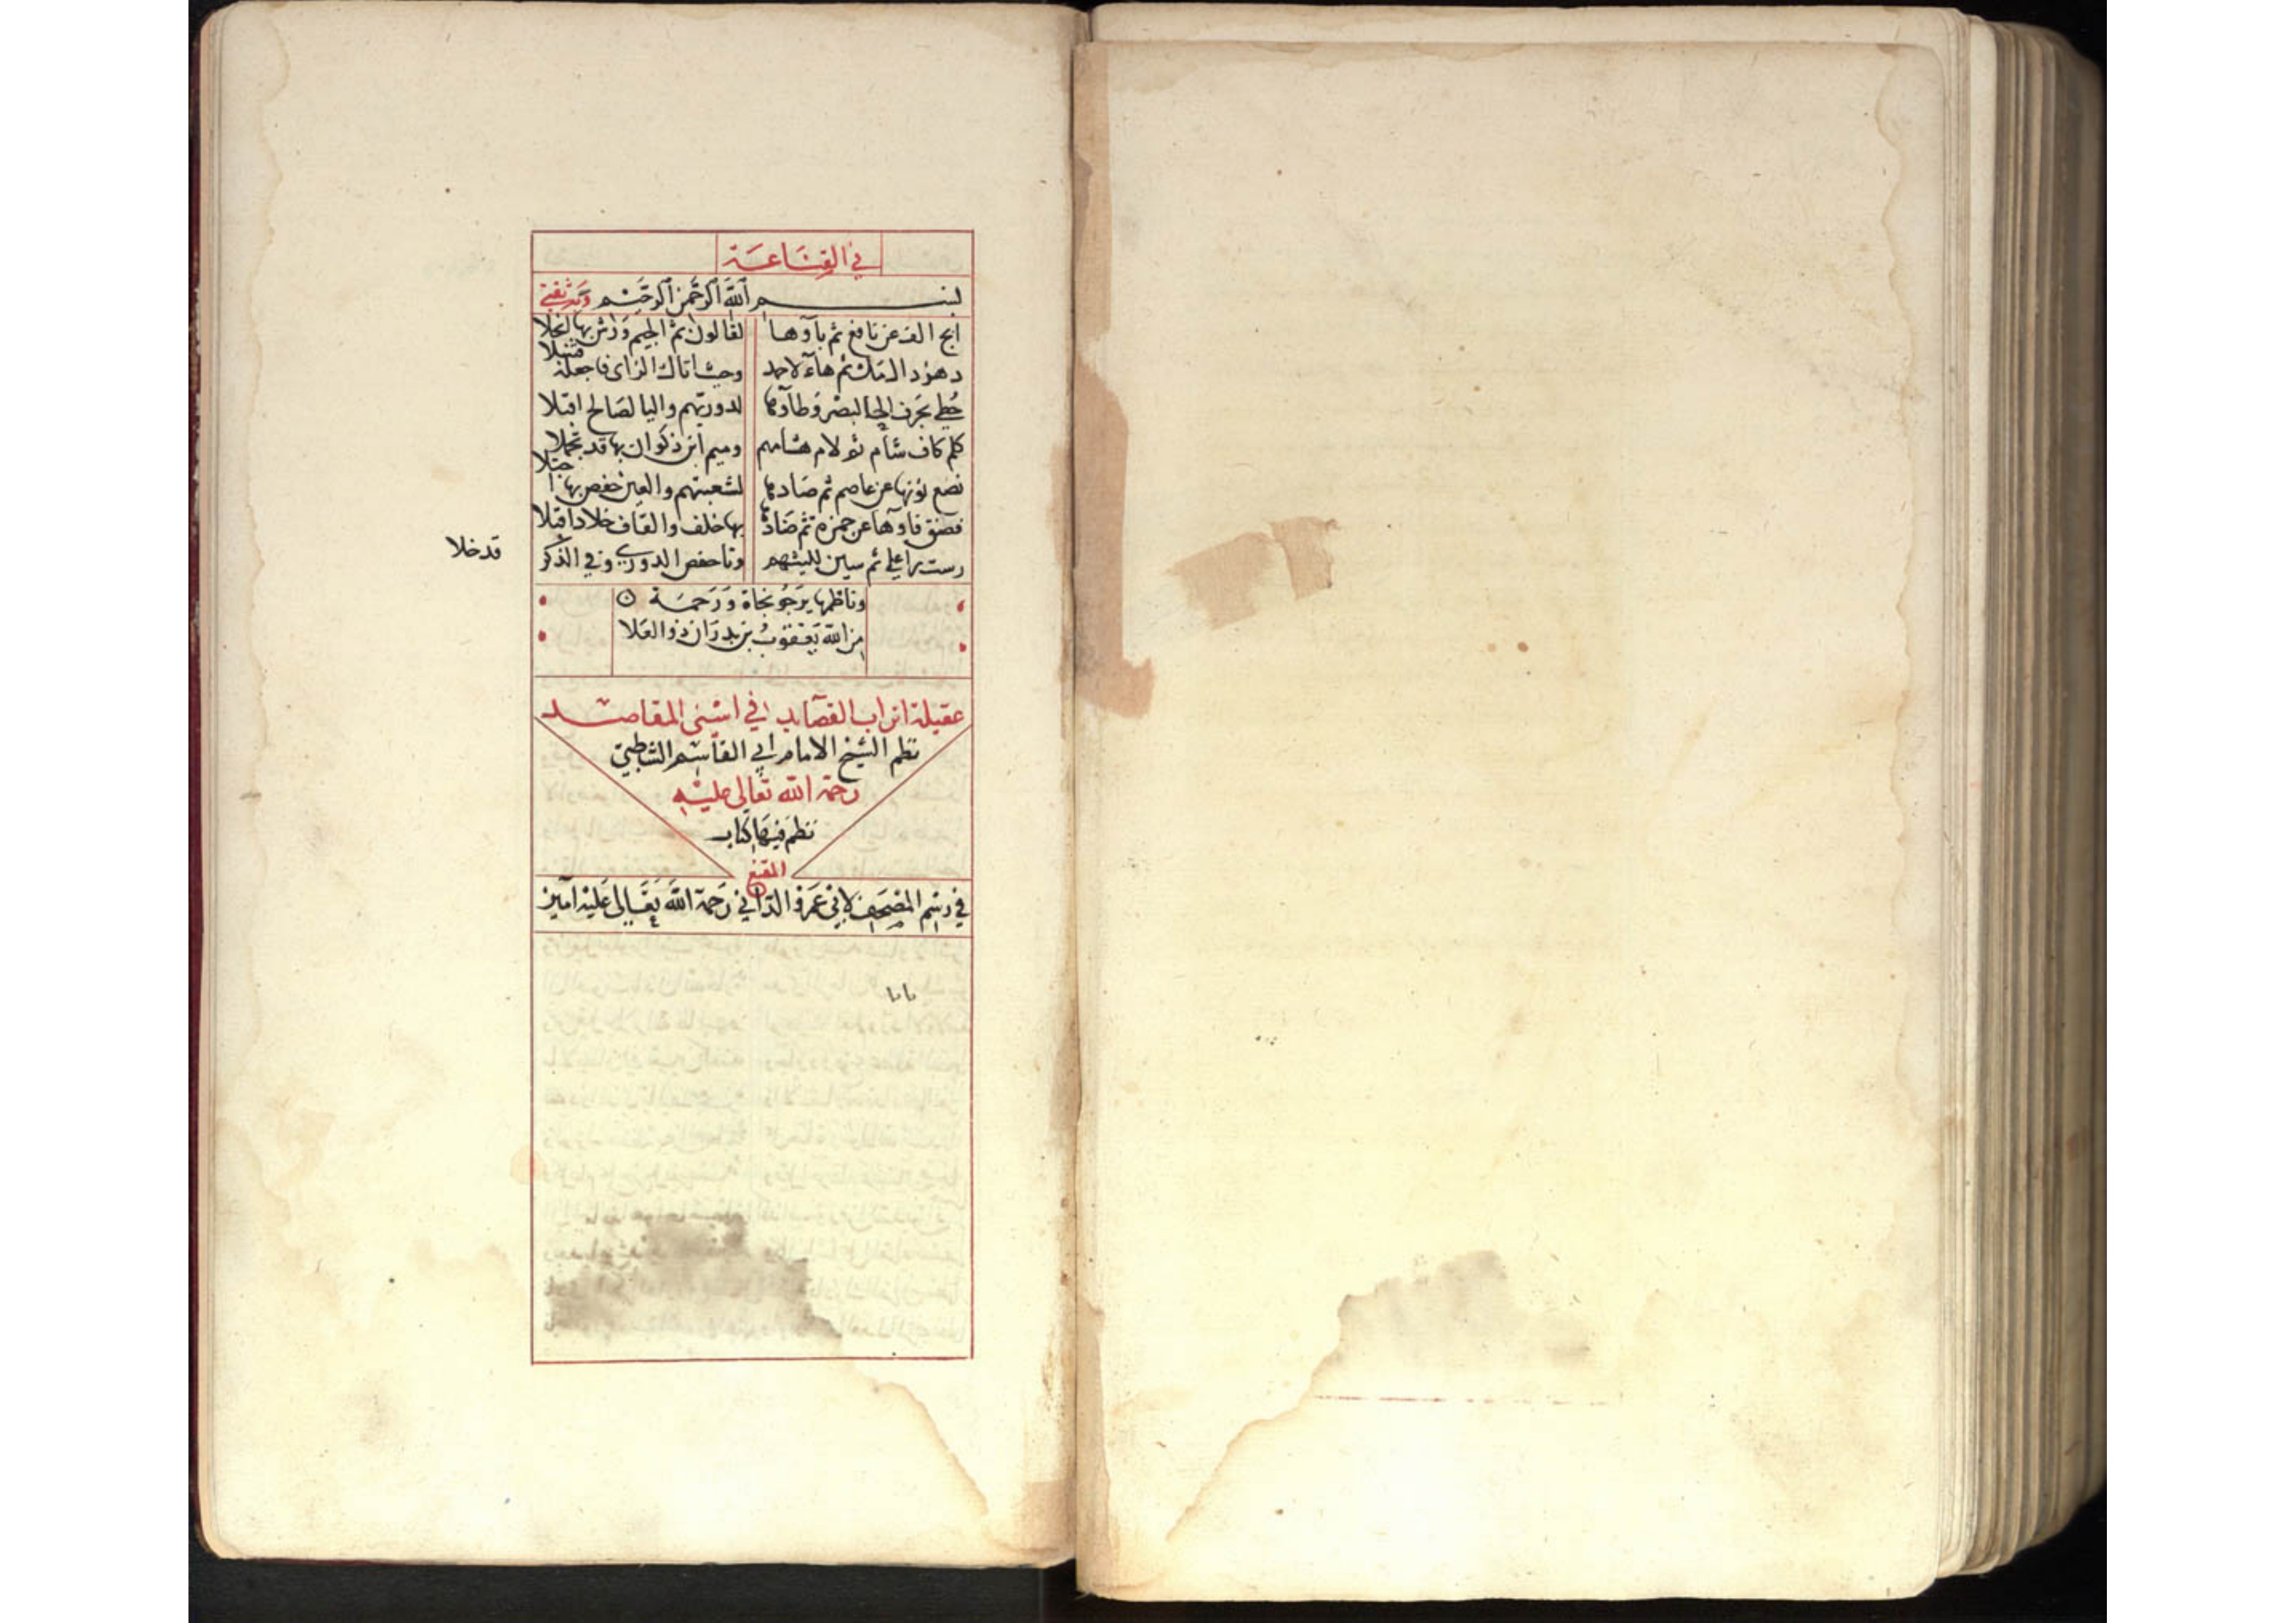 في القناعة
بسم الله الرحمن الرحيم وبه ثقتي
ابج الف عن نافع ثم باؤها لقالون ثم الجيم ورش بها انجلا
دهز دال مك ثم هاء لاحمد وحيث اتاك الزاى فاجعله قنبلا
حطي بحرف الحا لبصر وطاؤها لدوريهم واليا لصالح اقبلا
كلم كاف شام ثم لام هشامهم وميم ابن ذكوان بها قد تجملا
نصع نونها عن عاصم ثم صادها لشعبتهم والعين حفص بها
فضق فاوها عن حمزة ثم ضادها بها خلف والقاف خلاد اقبلا
رست را علي ثم سين لليثهم وتا حفص الدوري وفي الذكر
قد خلا
وناظمها يرجو نجاة ورحمة
من الله يعقوب بن بدران ذو العلا
عقيلة اتراب القصايد في اسنى المقاصد
نظم الشيخ الامام ابي القاسم الشاطبي
رحمة الله تعالى عليه
نظم فيها كتاب
المقنع
في رسم المصحف لابي عمرو الداني رحمة الله تعالى عليه آمين